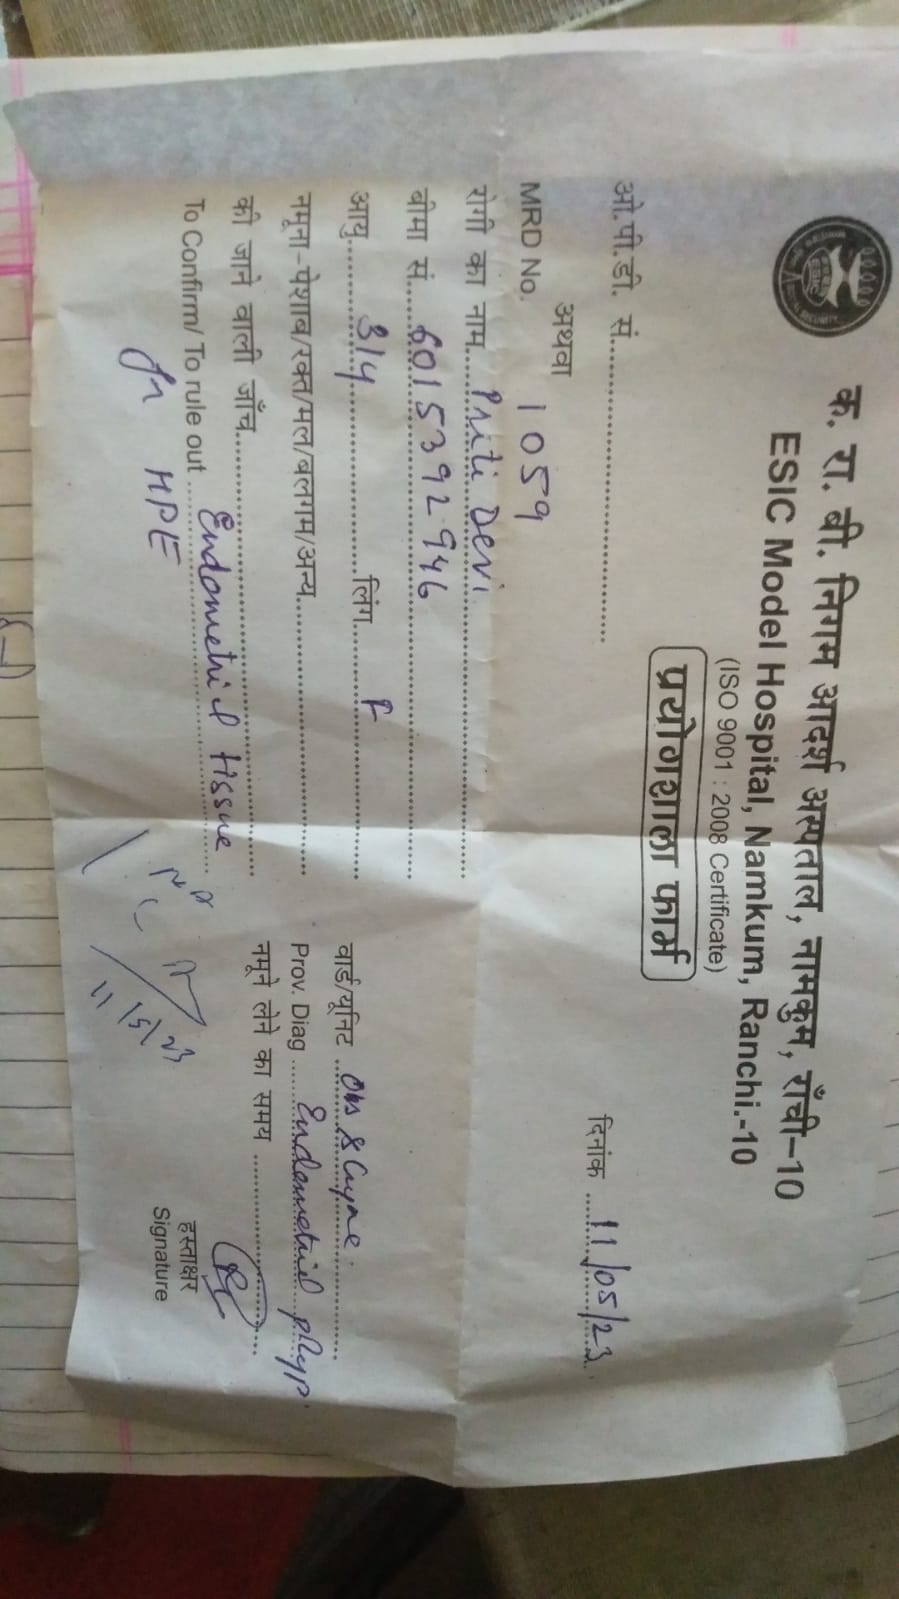 क. रा. बी. निगम आदर्श अस्पताल, नामकुम, राँची-10
ESIC Model Hospital, Namkum, Ranchi.-10
(ISO 9001 : 2008 Certificate)
प्रयोगशाला फार्म
ओ.पी.डी. सं..............................
दिनांक ....11/05/23
अथवा
MRD No. 1059
रोगी का नाम....Priti Devi
बीमा सं....6015392946
वार्ड/यूनिट ....Obs & Gynae.
आयु...........लिंग......F
Prov. Diag ....Endometrial
नमूना-पेशाब/रक्त/मल/बलगम/अन्य..............................
नमूने लेने का समय ....................
की जाने वाली जाँच..............................
To Confirm/ To rule out ....Endometrial tissue
HPE
11/5/23
हस्ताक्षर
Signature